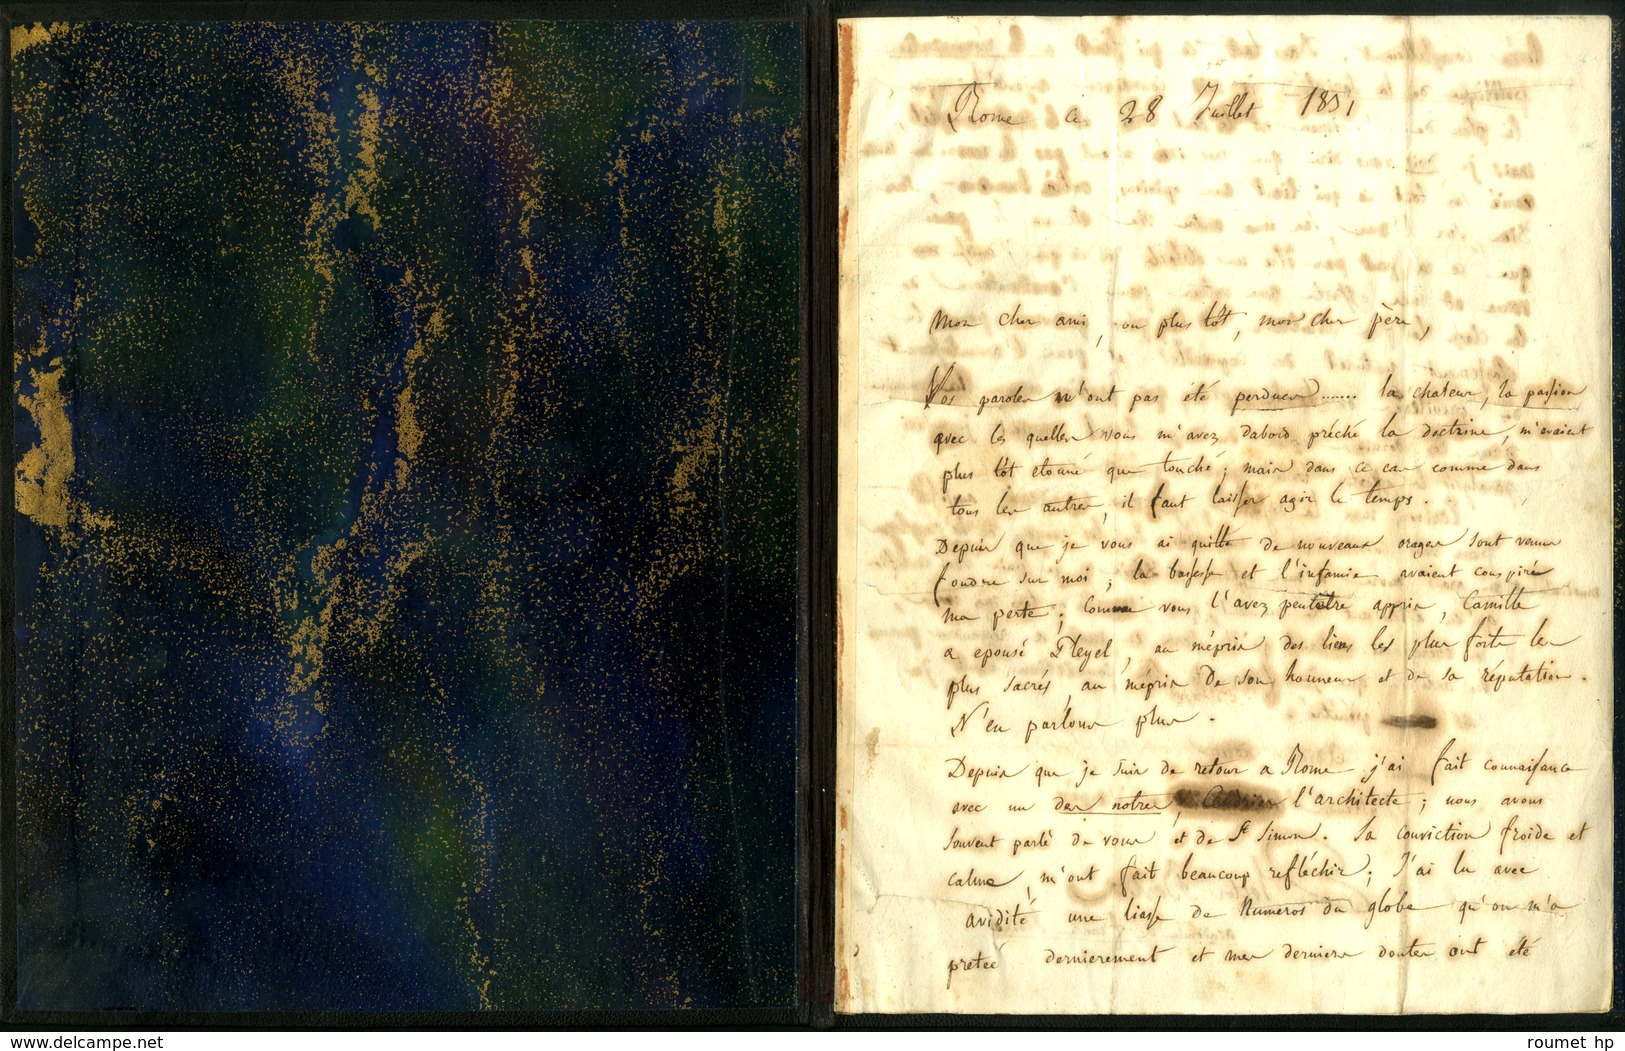 Rome ce 28 Juillet 1831
Mon cher ami, ou plus tôt, mon cher père,
Vos paroles n'ont pas été perdues ....... la chaleur, la passion
avec les quelles vous m'avez dabord préché la doctrine, m'avaient
plus tôt etonné que touché; mais dans ce cas comme dans
tous les autres, il faut laisser agir le temps.
Depuis que je vous ai quitté de nouveaux orages sont venus
fondre sur moi; la bassesse et l'infamie avaient conspiré
ma perte; Comme vous l'avez peutêtre appris, Camille
a epousé Pleyel, au mépris des liens les plus forts les
plus sacrés, au mépris de son honneur et de sa réputation.
N'en parlons plus.
Depuis que je suis de retour a Rome j'ai fait connaissance
avec un des notres, Cendrier l'architecte; nous avons
souvent parlé de vous et de St Simon. Sa conviction froide et
calme, m'ont fait beaucoup refléchir; J'ai lu avec
avidité une liasse de Numeros du globe qu'on m'a
pretée dernierement et mes derniers doutes ont été
www.delcampe.net
roumet hp